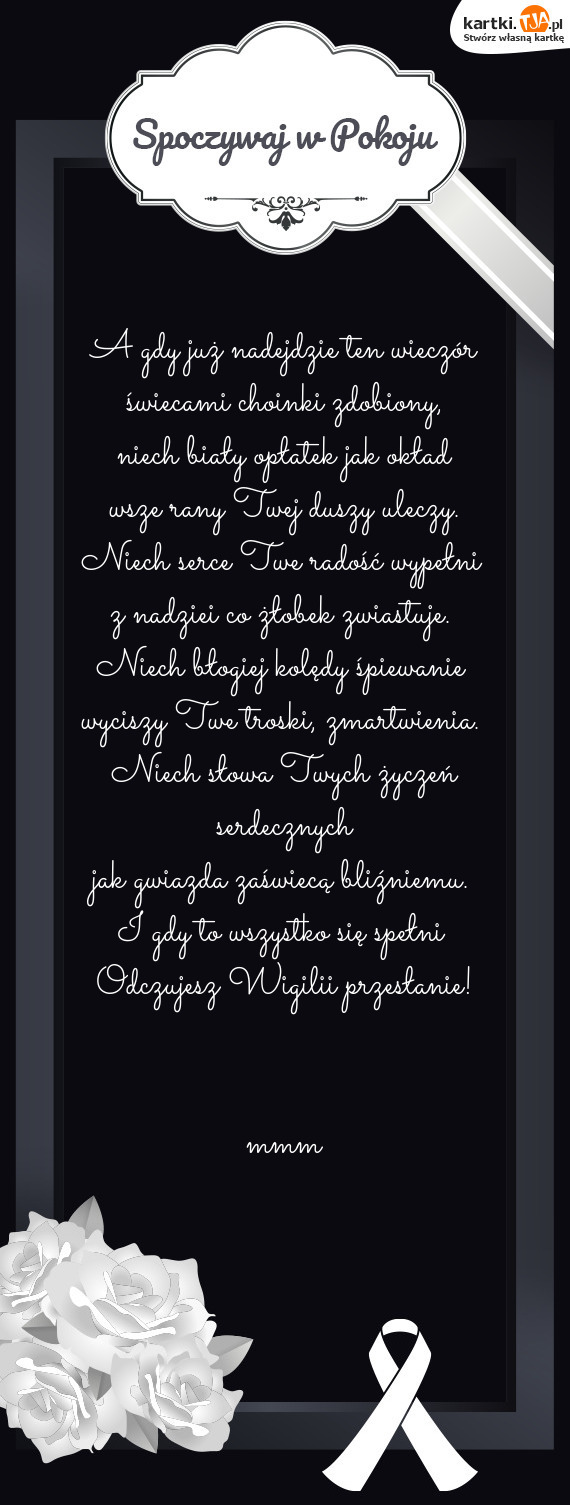 kartki.TJA.pl
Stwórz własną kartkę
Spoczywaj w Pokoju
A gdy już nadejdzie ten wieczór
świecami choinki zdobiony,
niech biały opłatek jak okład
wsze rany Twej duszy uleczy.
Niech serce Twe radość wypełni
z nadziei co żłobek zwiastuje.
Niech błogiej kolędy śpiewanie
wyciszy Twe troski, zmartwienia.
Niech słowa Twych życzeń
serdecznych
jak gwiazda zaświecą bliźniemu.
I gdy to wszystko się spełni
Odczujesz Wigilii przesłanie!
mmm